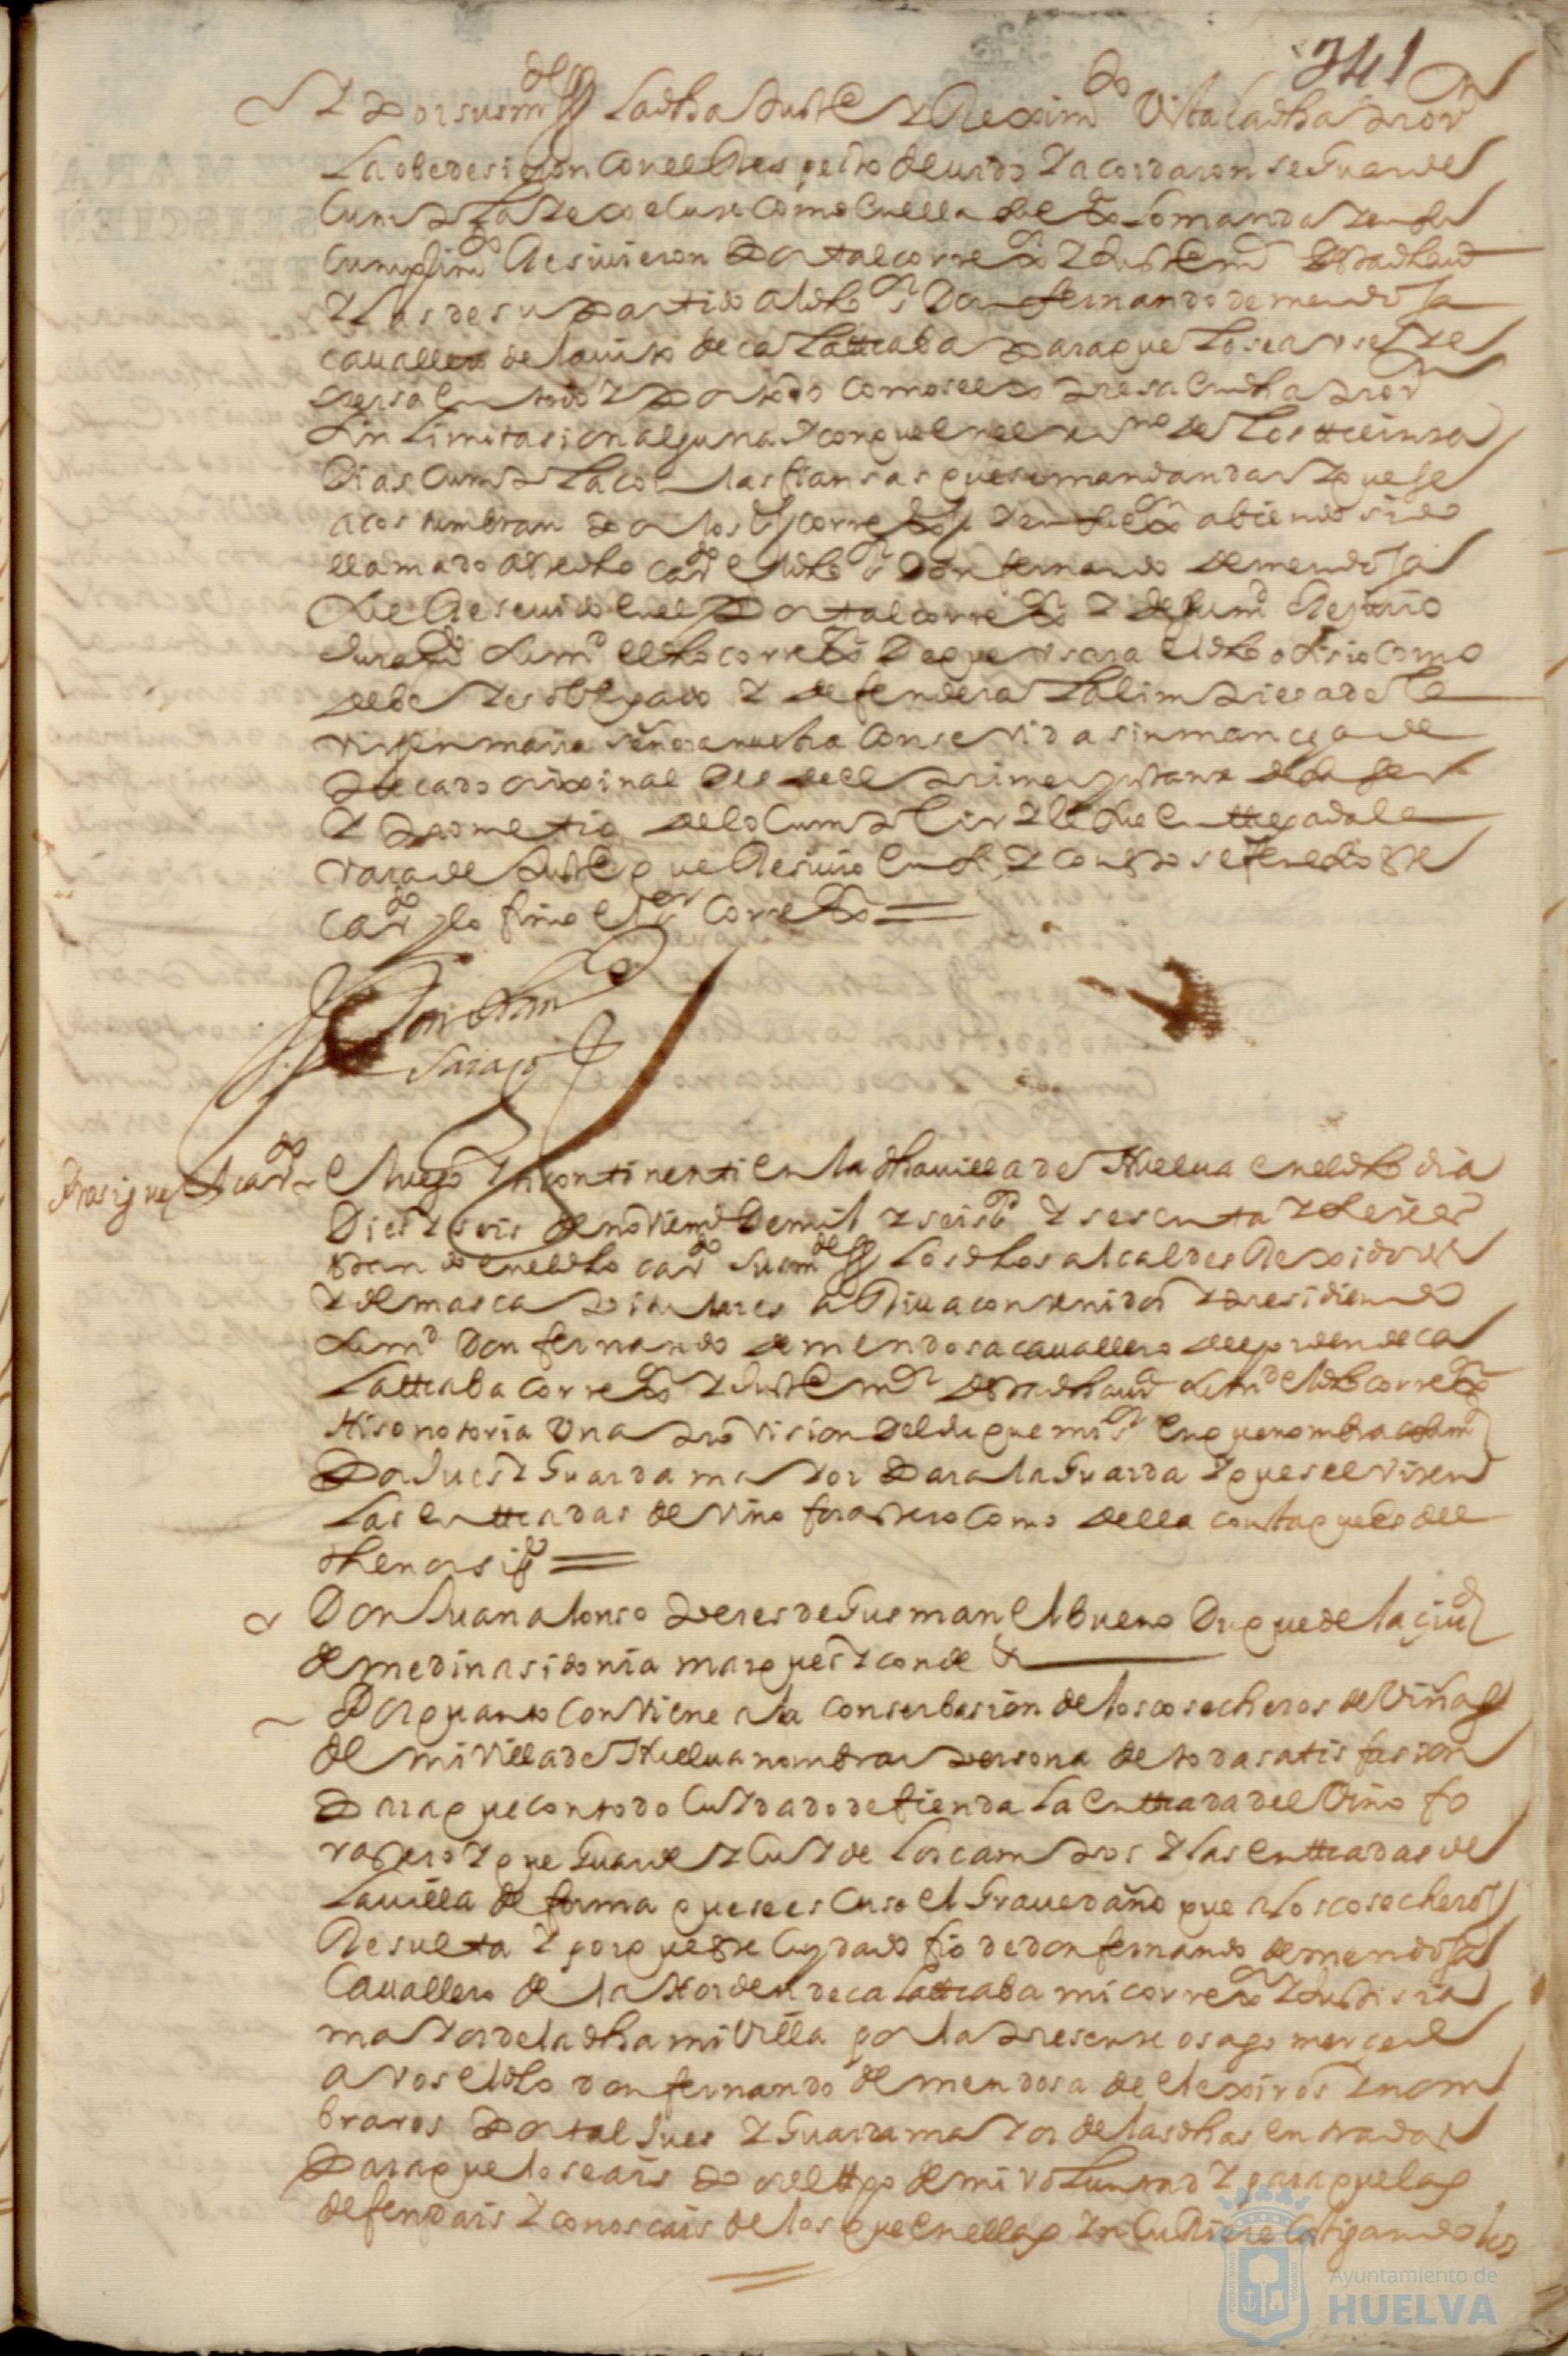 241
Y por sus mds la dha Justa y Reximto Vista la dha prov
la obedesieron con el Respeto deuido Y acordaron se Guarde
Cumpla y execute como en ella su exa lo manda y en su
Cumplimto Resiuieron Por tal corregor Y Justa mor desta dha va
Y las de su partido al dho sr Don fernando de mendosa
cauallero del auito de calattraba para que lo sea y use y e
xersa en todo Y Por todo como se expresa en dha prov
sin limitasion alguna Y con que en el termno de los ttreinta
Dias Cumpla con las fiansas que se mandan dar Y que se
acostumbran por los corregores Y en su exon abiendo sido
llamado a este dho cavdo el dho sr Don fernando de mendosa
fue Reseuido en el Por tal corregor Y de su md Resiuio
Juramto su md el dho corregor De que usara el dho ofisio como
debe Y es obligado Y defendera la limpiesa de la
Virgen maria señora nuestra Conseuida sin mancha de
pecado orixinal desde el primer ynstante de su ser
Y prometio de lo Cumplir Y le fue enttregada la
vara de Justa que Resiuio en si Y con esto se fenesio este
cavdo y lo firmo el sr Corregor =
Prosigue el cavdo
E luego Yncontinenti en la dha uilla de Huelua en el dho dia
Dies Y seis de nouiembre de mil Y seisos Y sesenta Y seis
estando en el dho cavdo sus mds los dhos alcaldes Rexidores
Y demas capitulares a el Riua contenidos Y presidiendo
su md Don fernando de mendosa cauallero del orden de ca
lattraba corregor Y Justa mor desta dha va su md el dho corregor
Hiso notoria Una prouision del duque mi sr en que nombra a su md
Por Jues Y Guarda mayor Para la Guarda Y que se euiten
las enttradas de vino forastero como della consta que es del
thenor sigte =
Don Juan alonso peres de Gusman el bueno Duque de la ciud
de medina sidonia marques Y conde &
Por quanto conviene a la conserbasion de los cosecheros de viñas
de mi villa de Huelua nombrar persona de toda satisfasion
Para que con todo Cuydado defienda la enttrada del Vino fo
rastero Y que Guarde Y Cuyde los campos Y las enttradas de
la uilla de forma que se escuse el Graue daño que a los cosecheros
Resulta Y porque este Cuydado fio de don fernando de mendosa
Cauallero de la Horden de calattraba mi corregor Y Justisia
mayor de la dha mi Villa por la presente os ago merced
a vos el dho don fernando de mendosa de elexiros Y nom
braros Por tal Jues Y Guarda mayor de las dhas entradas
Para que lo seais por el tpo de mi voluntad Y para que las
defendais Y conoscais de los que en ellas Yncurriere castigandolos
Ayuntamiento de
HUELVA